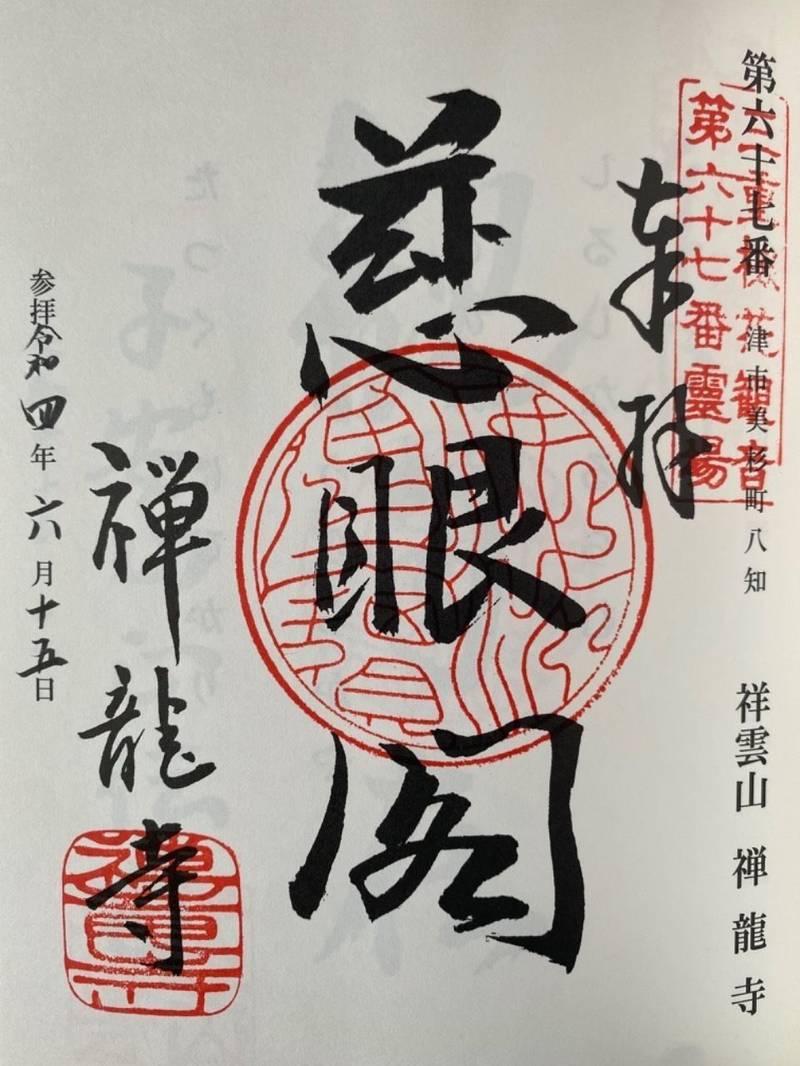 第六十七番 津市美杉町八知 祥雲山 禅龍寺
三重梅花観音
第六十七番靈場
奉拝
慈眼閣
禅龍寺
参拝令和四年六月十五日